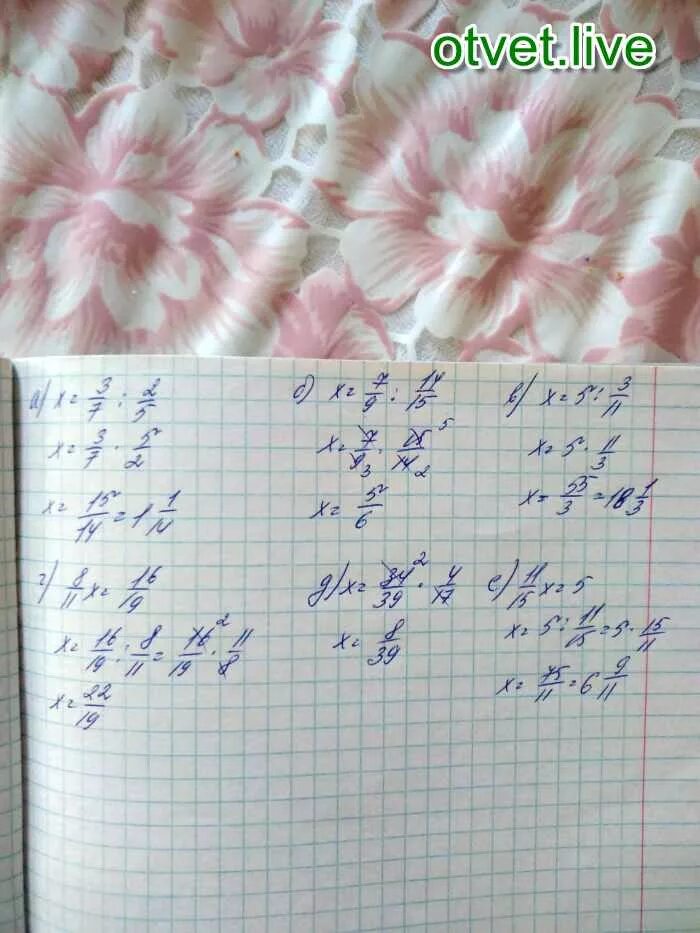 otvet.live
а) x = 3/7 : 2/5
x = 3/7 · 5/2
x = 15/14 = 1 1/14
б) x = 7/9 : 14/15
x = 7/9 3 · 15/14 5 2
x = 5/6
в) x = 5 : 3/11
x = 5 · 11/3
x = 55/3 = 18 1/3
г) 8/11 x = 16/19
x = 16/19 : 8/11 = 16/19 2 · 11/8
x = 22/19
д) x = 34/39 2 · 4/17
x = 8/39
е) 11/15 x = 5
x = 5 : 11/15 = 5 · 15/11
x = 75/11 = 6 9/11